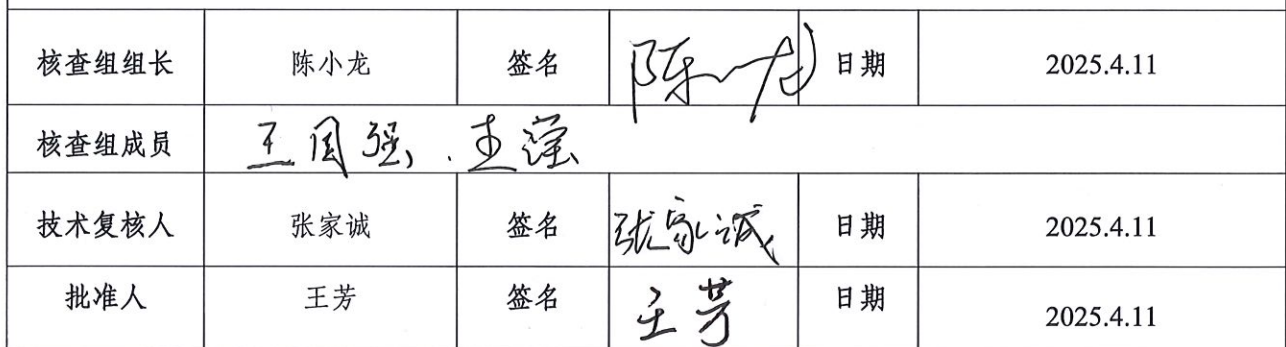 核查组组长 陈小龙 签名 陈小龙 日期 2025.4.11
核查组成员 王国强、王滢
技术复核人 张家诚 签名 张家诚 日期 2025.4.11
批准人 王芳 签名 王芳 日期 2025.4.11